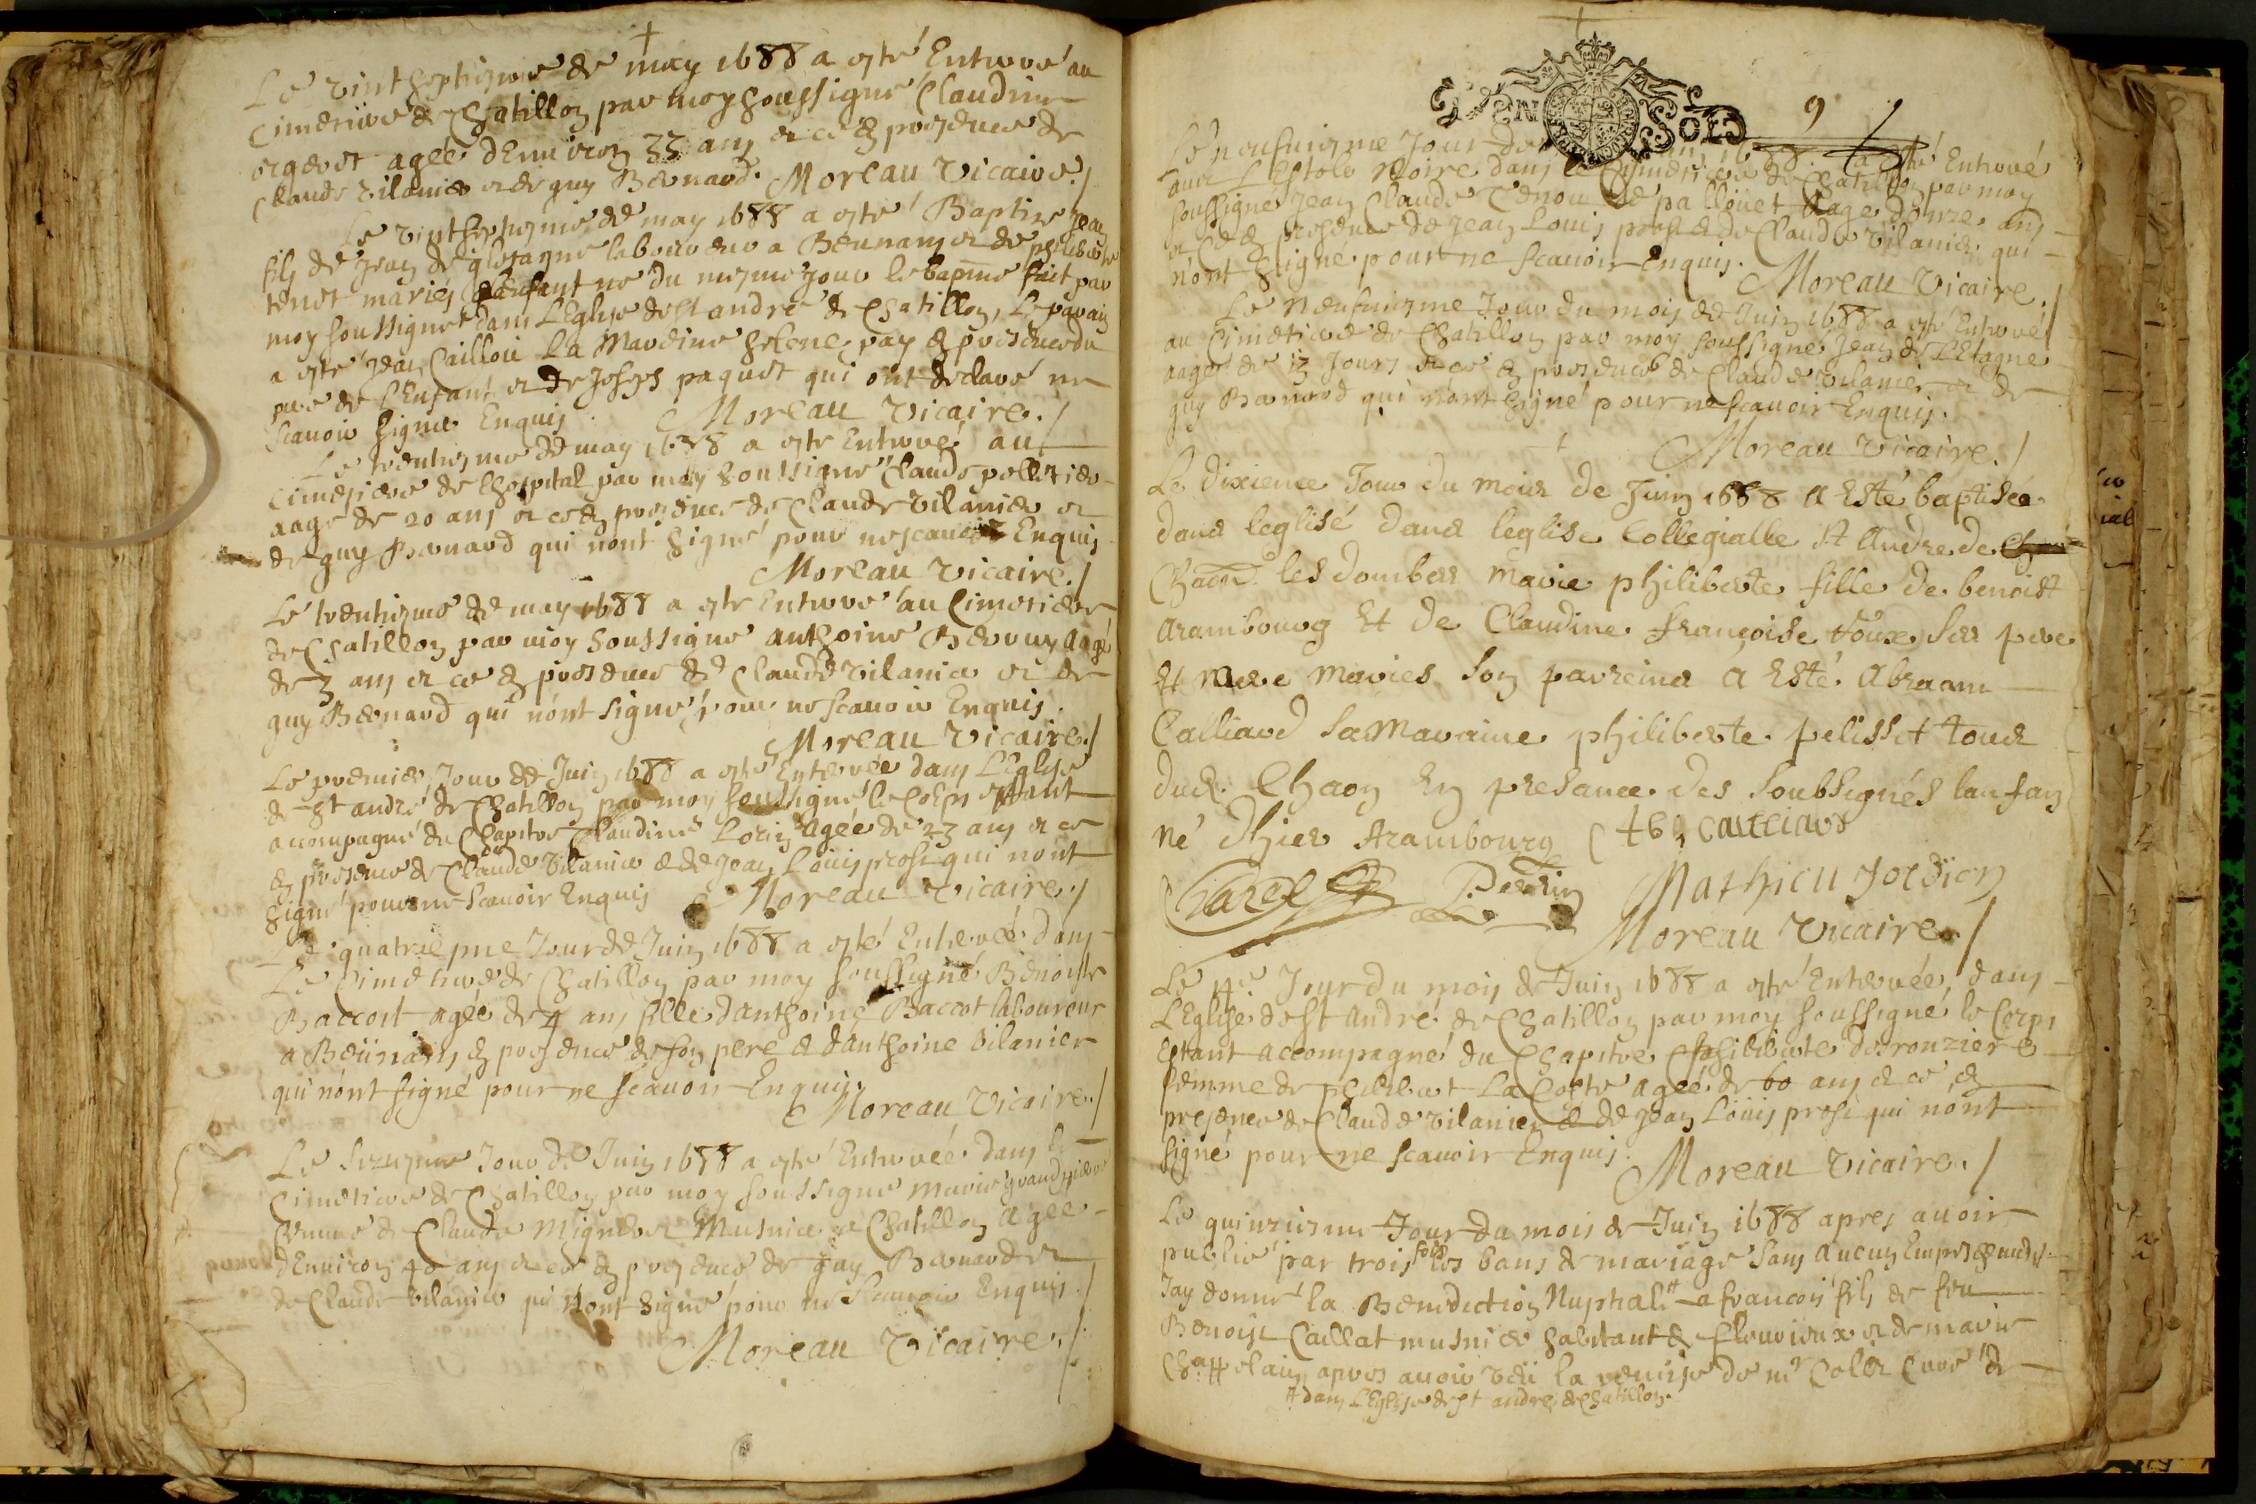 Le vint septiesme de may 1688 a esté Enterré au
Cimetiere de Chatillon par moy soussigné Claudine
agée d'environ 33 ans et ce en presence de
Claude vilanier et de guy Bernard. Moreau Vicaire.
Le vint septiesme de may 1688 a esté Baptizé Jean
fils de Jean de laboureur a Beunans et de philiberte
mariés l'enfant né du mesme jour le bapme fait par
moy soussigné dans L'Eglise de St andré de Chatillon, Le parain
a esté Jean Caillou La Mareine en presence du
pere de l'Enfant et de Joseph paquet qui ont declaré ne
scavoir signer Enquis Moreau Vicaire.
Le trentiesme de may 1688 a esté Enterré au
Cimetiere de l'hospital par moy soussigné Claude pelletier
aagé de 20 ans et ce en presence de Claude vilanier et
de guy Bernard qui nont signé pour ne scavoir Enquis
Moreau Vicaire.
Le trentiesme de may 1688 a esté Enterré au Cimetiere
de Chatillon par moy soussigné anthoine aagé
de 3 ans et ce en presence de Claude vilanier et de
guy Bernard qui nont signé pour ne scavoir Enquis.
Moreau Vicaire.
Le premier Jour de Juin 1688 a esté Enterrée dans L'Eglise
de St andré de Chatillon par moy soussigné le Corps estant
accompagné du Chapitre Claudine Lorin agée de 23 ans et ce
en presence de Claude vilanier et de Jean Louis prost qui nont
signé pour ne scavoir Enquis Moreau Vicaire.
Le quatriesme Jour de Juin 1688 a esté Enterrée dans
Le Cimetiere de Chatillon par moy soussigné Benoiste
Baccot agée de 4 ans fille d'anthoine Baccot laboureur
a Beunans en presence de son pere et d'anthoine vilanier
qui nont signé pour ne scavoir Enquis.
Moreau Vicaire.
Le Jour de Juin 1688 a esté Enterrée dans le
Cimetiere de Chatillon par moy soussigné marie
de Claude Musnier de Chatillon agée
d'Environ 40 ans et ce en presence de guy Bernard et
de Claude vilanier qui nont signé pour ne scavoir Enquis.
Moreau Vicaire.
GEN SOLS
9
Le neufuiesme Jour de 1688 a esté Enterré
avec L'Estole Noire dans le Cimetiere de Chatillon par moy
soussigné Jean Claude de aagé d'onze ans
et ce en presence de Jean Louis prost et de Claude vilanier qui
nont signé pour ne scavoir Enquis. Moreau Vicaire.
Le neufuiesme Jour du mois de Juin 1688 a esté Enterré
au Cimetiere de Chatillon par moy soussigné Jean de
aagé de 13 Jours et ce en presence de Claude vilanier et de
guy Bernard qui nont signé pour ne scavoir Enquis.
Moreau Vicaire.
Le dixieme Jour du mois de Juin 1688 a Esté baptisée
dans leglise dans leglise Collegialle St Andre de
Chaon les dombes marie philiberte fille de benoist
Arambourg Et de Claudine françoise Roux ses pere
Et mere mariés son parreins a Esté Abraam
Calliard sa Maraine philiberte pelisset tous
dud. Chaon En presance des soubsignés lanfan
né dhier Arambourg Calliard
Perrin Mathieu Jordien
Moreau Vicaire.
Le Jour du mois de Juin 1688 a esté Enterrée dans
L'Eglise de St André de Chatillon par moy soussigné le Corps
estant accompagné du Chapitre philiberte desronziere
femme de philibert La Coste agée de 60 ans et ce en
presence de Claude vilanier et de Jean Louis prost qui nont
signé pour ne scavoir Enquis.
Moreau Vicaire.
Le quinziesme Jour du mois de Juin 1688 apres auoir
publié par trois fois les bans de mariage sans aucun Empeschement
Jay donné la Benediction Nuptiale # a francois fils de feu
Benoist Caillat musnier habitant a fleurieux et de marie
apres auoir veu la remise de mr Colet Curé de
# dans L'Eglise de St andre de Chatillon.